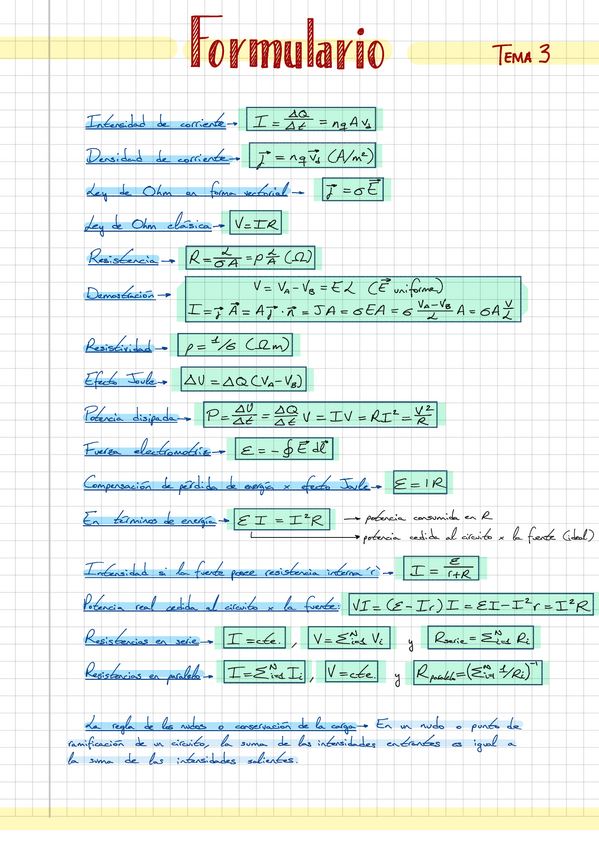 Formulario
TEMA 3
Intensidad de corriente → I = ΔQ/Δt = nqAv_d
Densidad de corriente → j⃗ = nqv⃗_d (A/m²)
Ley de Ohm en forma vectorial → j⃗ = σE⃗
Ley de Ohm clásica → V=IR
Resistencia → R = L/σA = ρ L/A (Ω)
Demostración → V = V_A - V_B = EL (E⃗ uniforme)
I = j⃗ A⃗ = Aj⃗·n⃗ = JA = σEA = σ (V_A-V_B)/L A = σA V/L
Resistividad → ρ = 1/σ (Ωm)
Efecto Joule → ΔU = ΔQ(V_A-V_B)
Potencia disipada → P = ΔU/Δt = ΔQ/Δt V = IV = RI² = V²/R
Fuerza electromotriz → ε = -∮E⃗ dl⃗
Compensación de pérdida de energía x efecto Joule → ε = IR
En términos de energía → εI = I²R → potencia consumida en R
→ potencia cedida al circuito x la fuente (ideal)
Intensidad si la fuente posee resistencia interna (r) → I = ε/(r+R)
Potencia real cedida al circuito x la fuente: VI = (ε-Ir)I = εI-I²r = I²R
Resistencias en serie → I = cte. , V = Σᴺᵢ₌₁ Vᵢ y R_serie = Σᴺᵢ₌₁ Rᵢ
Resistencias en paralelo → I = Σᴺᵢ₌₁ Iᵢ , V = cte. y R_paralelo = (Σᴺᵢ₌₁ 1/Rᵢ)⁻¹
La regla de los nudos o conservación de la carga → En un nudo o punto de
ramificación de un circuito, la suma de las intensidades entrantes es igual a
la suma de las intensidades salientes.